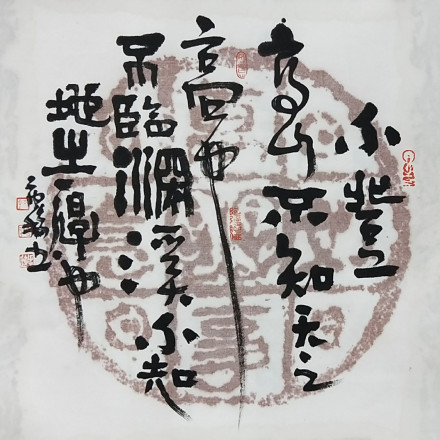 不登
高山不知天之
高也
不臨深溪不知
地之厚也